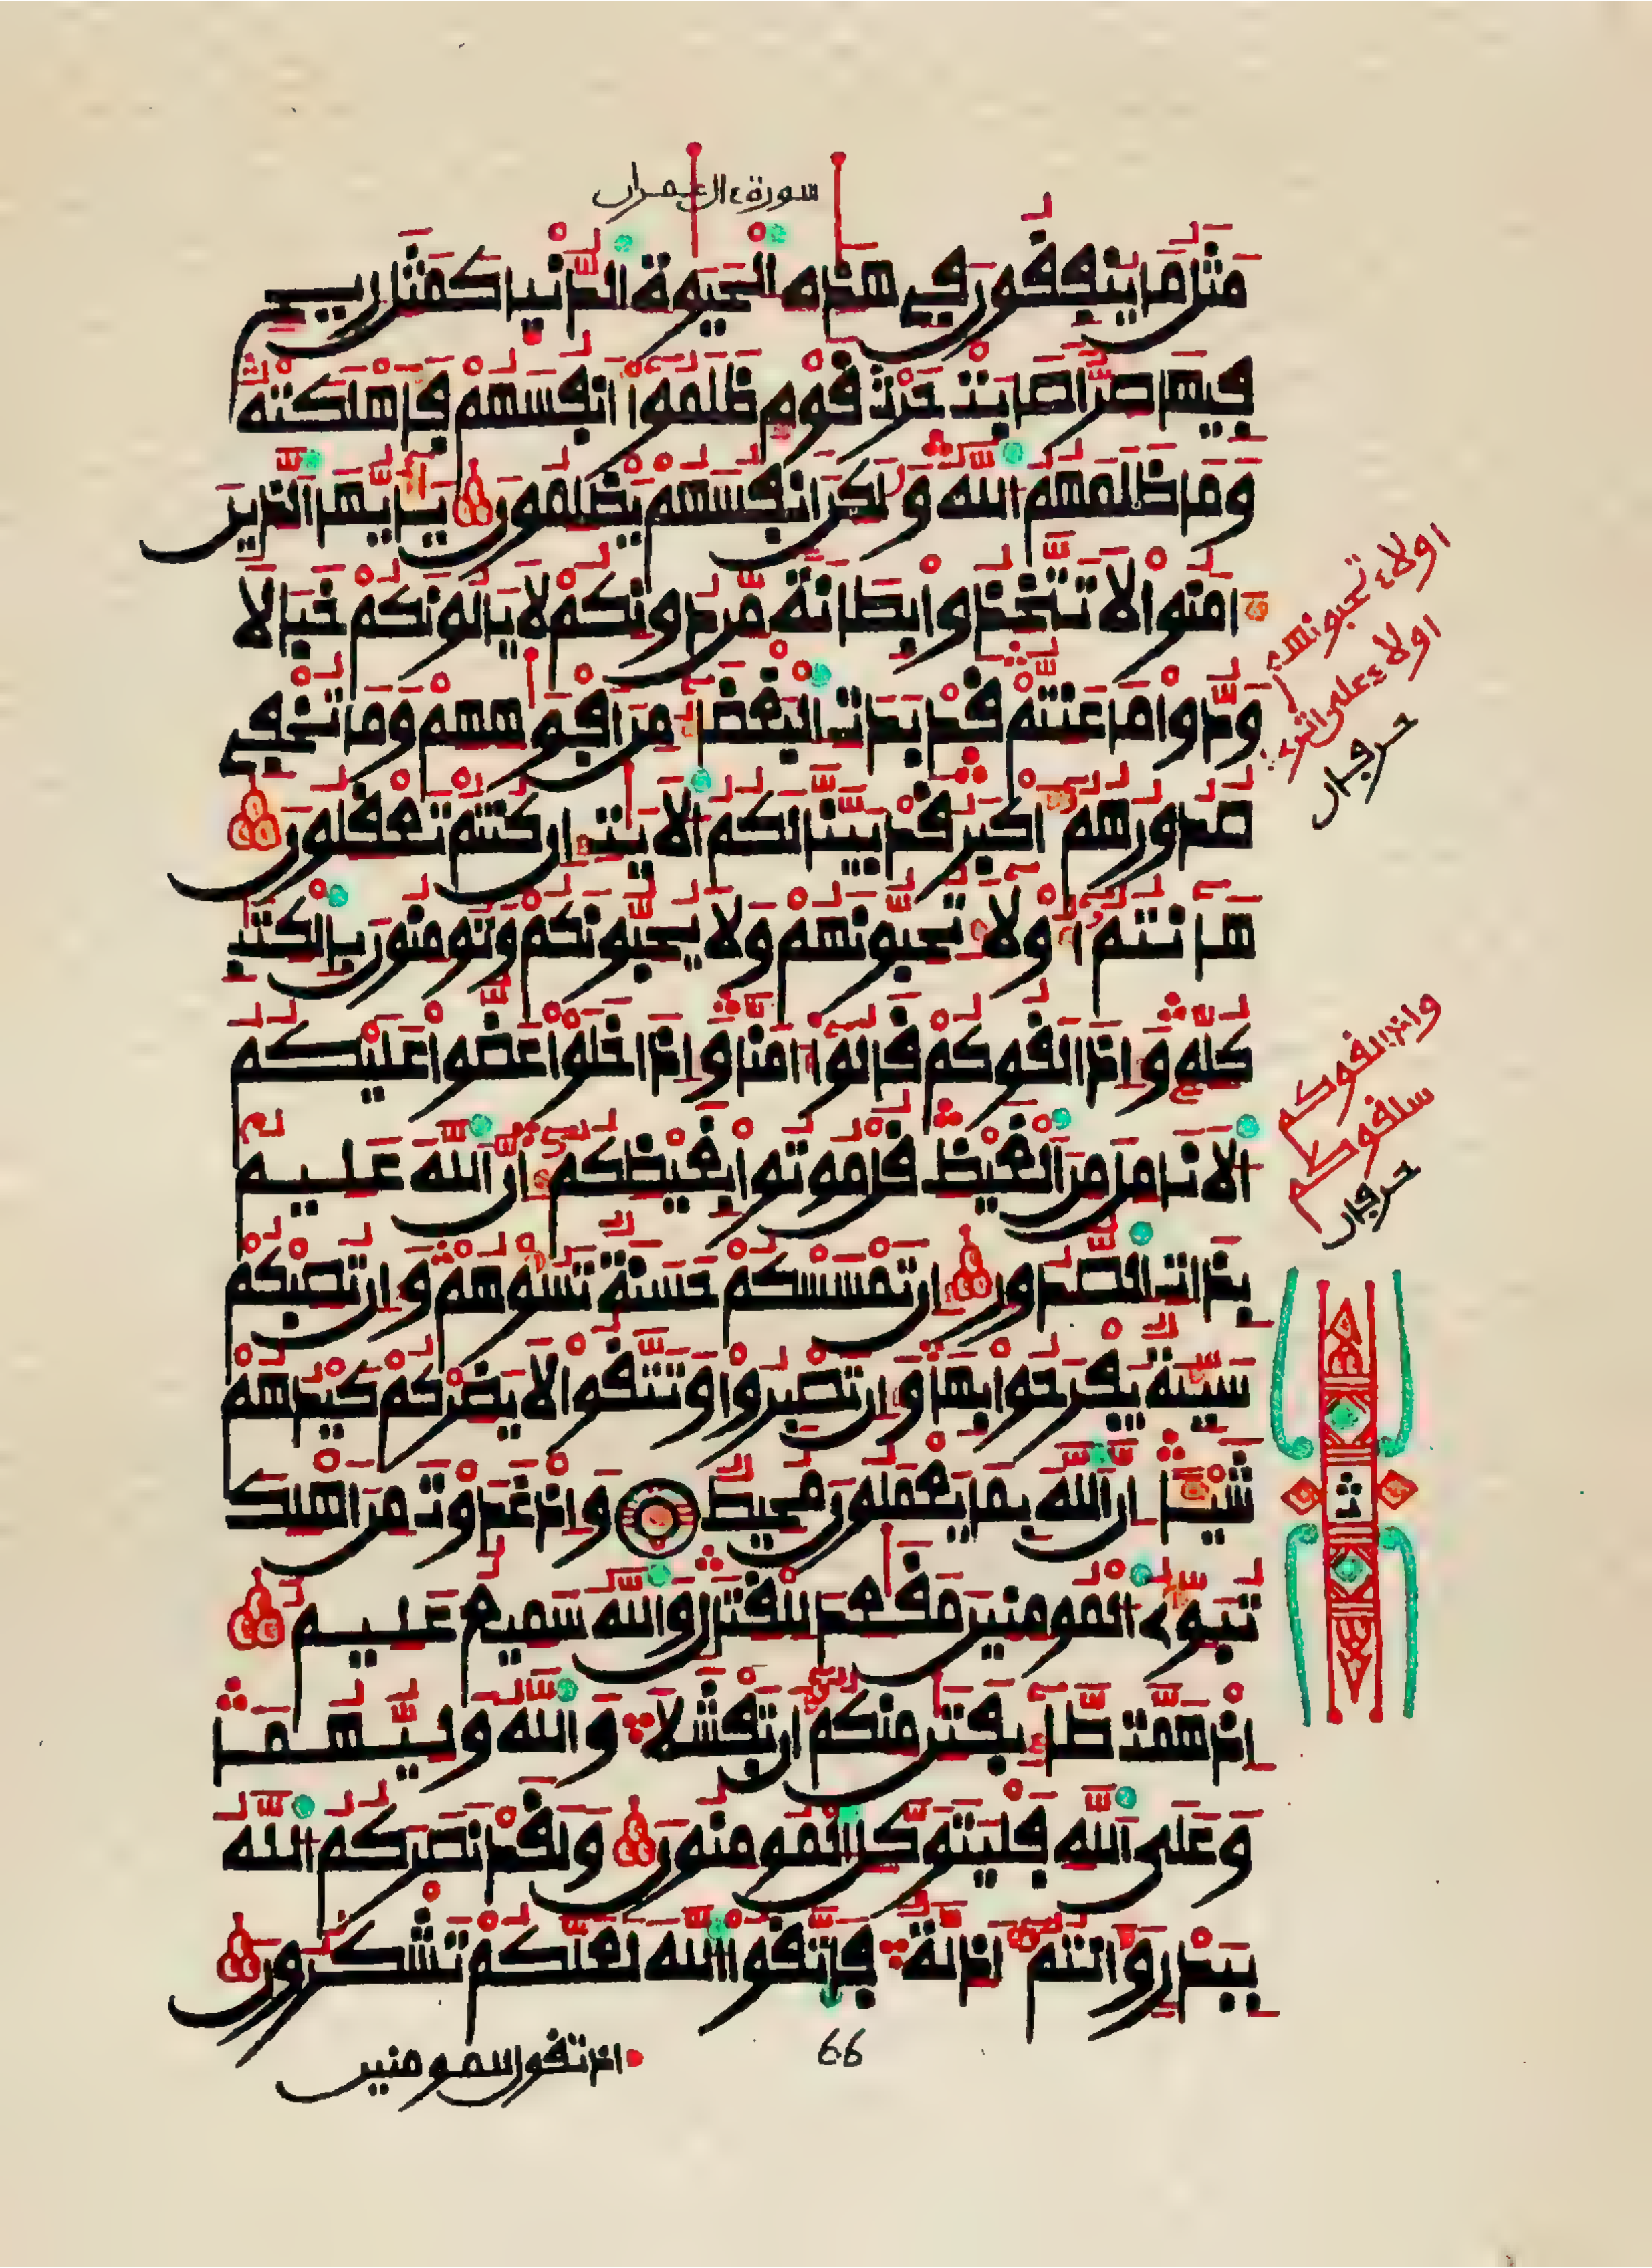 سورة ءال عمران
مثل ما ينفقون في هذه الحيوة الدنيا كمثل ريح
فيها صر اصابت حرث قوم ظلموا انفسهم فاهلكته
وما ظلمهم الله ولكن انفسهم يظلمون يايها الذين
امنوا لا تتخذوا بطانة من دونكم لا يالونكم خبالا
ودوا ما عنتم قد بدت البغضا من افوههم وما تخفي
صدورهم اكبر قد بينا لكم الايت ان كنتم تعقلون
هانتم اولا تحبونهم ولا يحبونكم وتومنون بالكتب
كله واذا لقوكم قالوا امنا واذا خلوا عضوا عليكم
الانامل من الغيظ قل موتوا بغيظكم ان الله عليم
بذات الصدور ان تمسسكم حسنة تسوهم وان تصبكم
سيية يفرحوا بها وان تصبروا وتتقوا لا يضركم كيدهم
شيا ان الله بما يعملون محيط واذ غدوت من اهلك
تبوئ المومنين مقعد للقتل والله سميع عليم
اذ همت طايفتن منكم ان تفشلا والله وليهما
وعلى الله فليتوكل المومنون ولقد نصركم الله
ببدر وانتم اذلة فاتقوا الله لعلكم تشكرون
66
اذ تقول للمومنين
اولاء تحبونهم
اولاء على اثري
حرفان
واذا لقوكم
سلقوكم
حرفان
ث